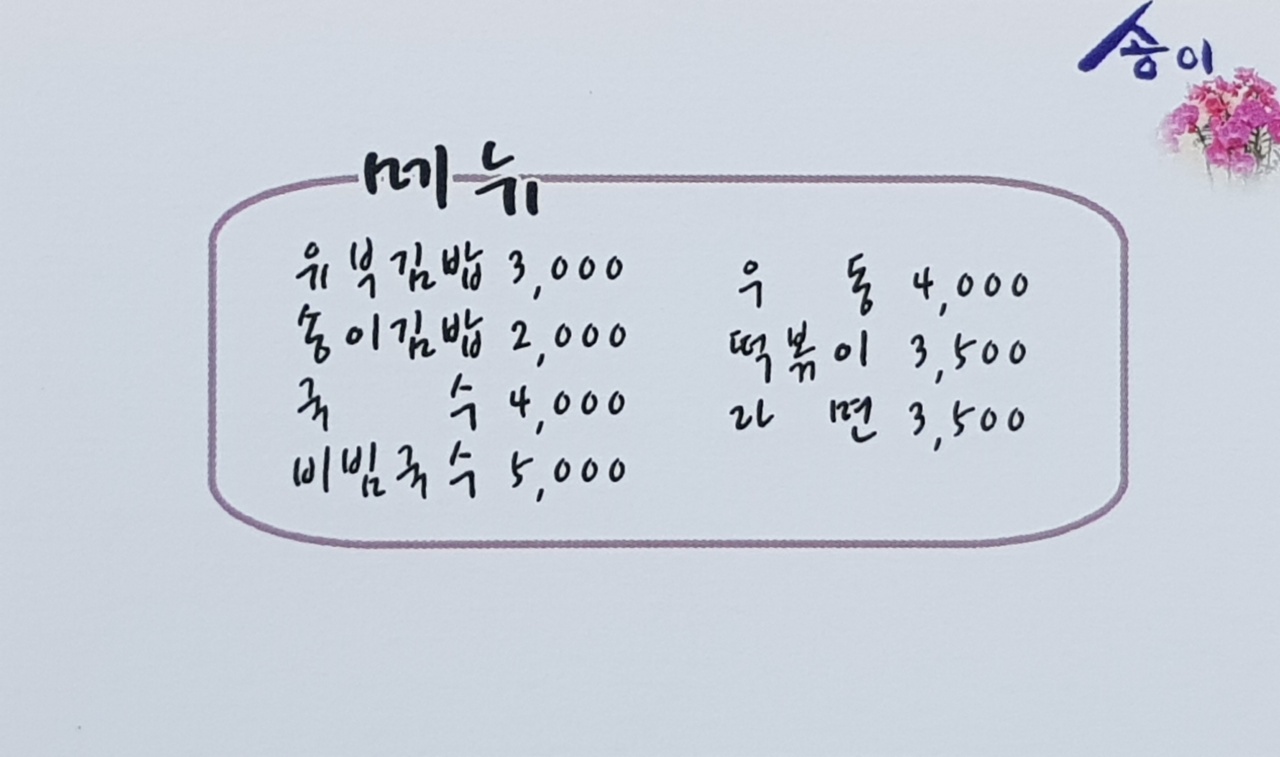 송이
메뉴
유부김밥 3,000
송이김밥 2,000
국수 4,000
비빔국수 5,000
우동 4,000
떡볶이 3,500
라면 3,500